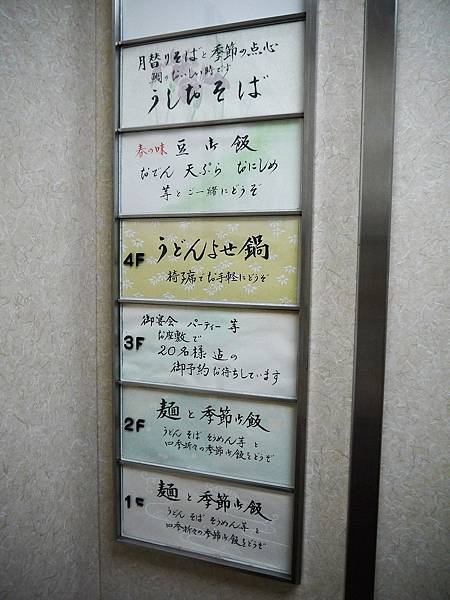 月替りそばと季節の点心
鯛のおいしい時です
うしおそば
春の味 豆御飯
おでん 天ぷら おにしめ
等とご一緒にどうぞ
4F うどんよせ鍋
椅子席でお手軽にどうぞ
御宴会 パーティー 等
お座敷で
3F 20名様迄の
御予約お待ちしています
麺と季節御飯
2F うどん そば そうめん等と
四季折々の季節御飯をどうぞ
麺と季節御飯
1F うどん そば そうめん等と
四季折々の季節御飯をどうぞ